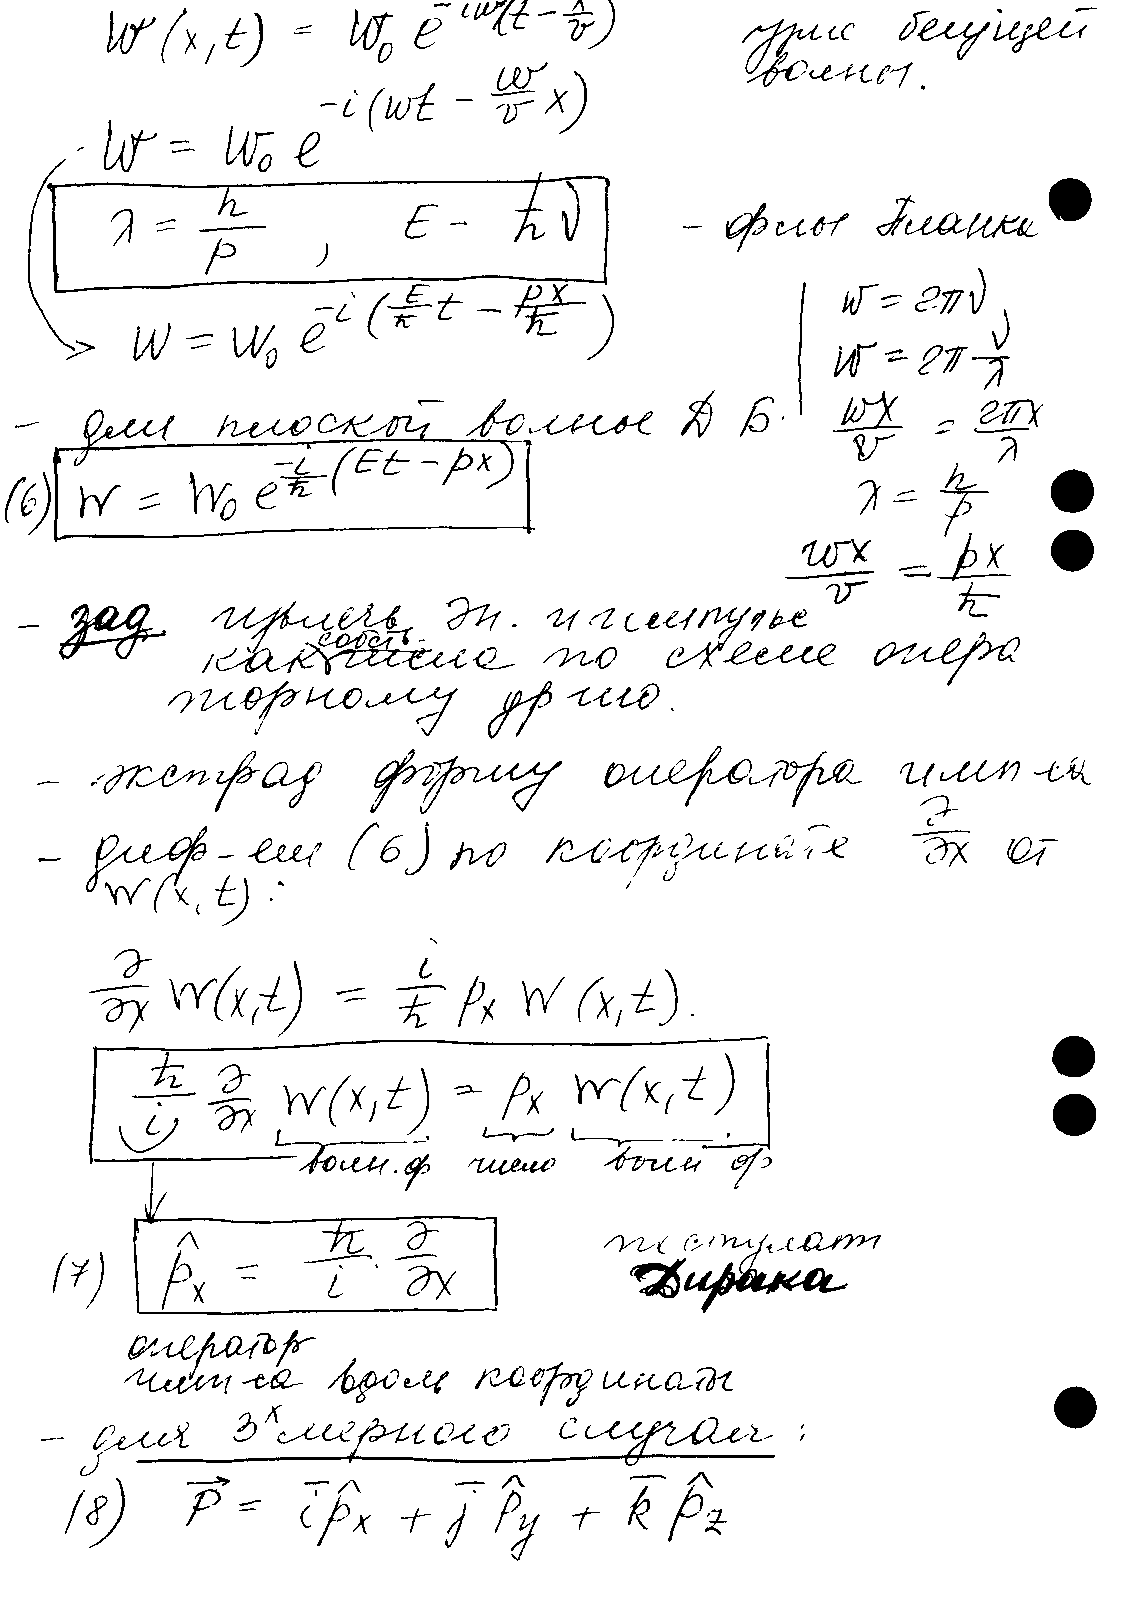 W(x,t) = W₀ e^{-iω(t - x/v)} ур-е бегущей
волны.
W = W₀ e^{-i(ωt - ω/v x)}
λ = h/p , E - ħν - ф-лы Планка
ω = 2πν
W = W₀ e^{-i(E/ħ t - px/ħ)}
ω = 2π v/λ
- для плоской волны Д Б. ωx/v = 2πx/λ
(6) W = W₀ e^{-i/ħ (Et - px)}
λ = h/p
ωx/v = px/ħ
- зад извлечь эн. и импульс
как собств. числа по схеме опера
торному ур-нию.
- экстрад форму оператора имп-са
- диф-ем (6) по координате ∂/∂x от
W(x,t):
∂/∂x W(x,t) = i/ħ pₓ W(x,t).
ħ/i ∂/∂x W(x,t) = pₓ W(x,t)
волн.ф число волн ф
(7) p̂ₓ = ħ/i · ∂/∂x постулат
Дирака
оператор
имп-са вдоль координаты
- для 3ˣ мерного случая:
(8) P⃗ = i̅ p̂ₓ + j̅ p̂_y + k̅ p̂_z